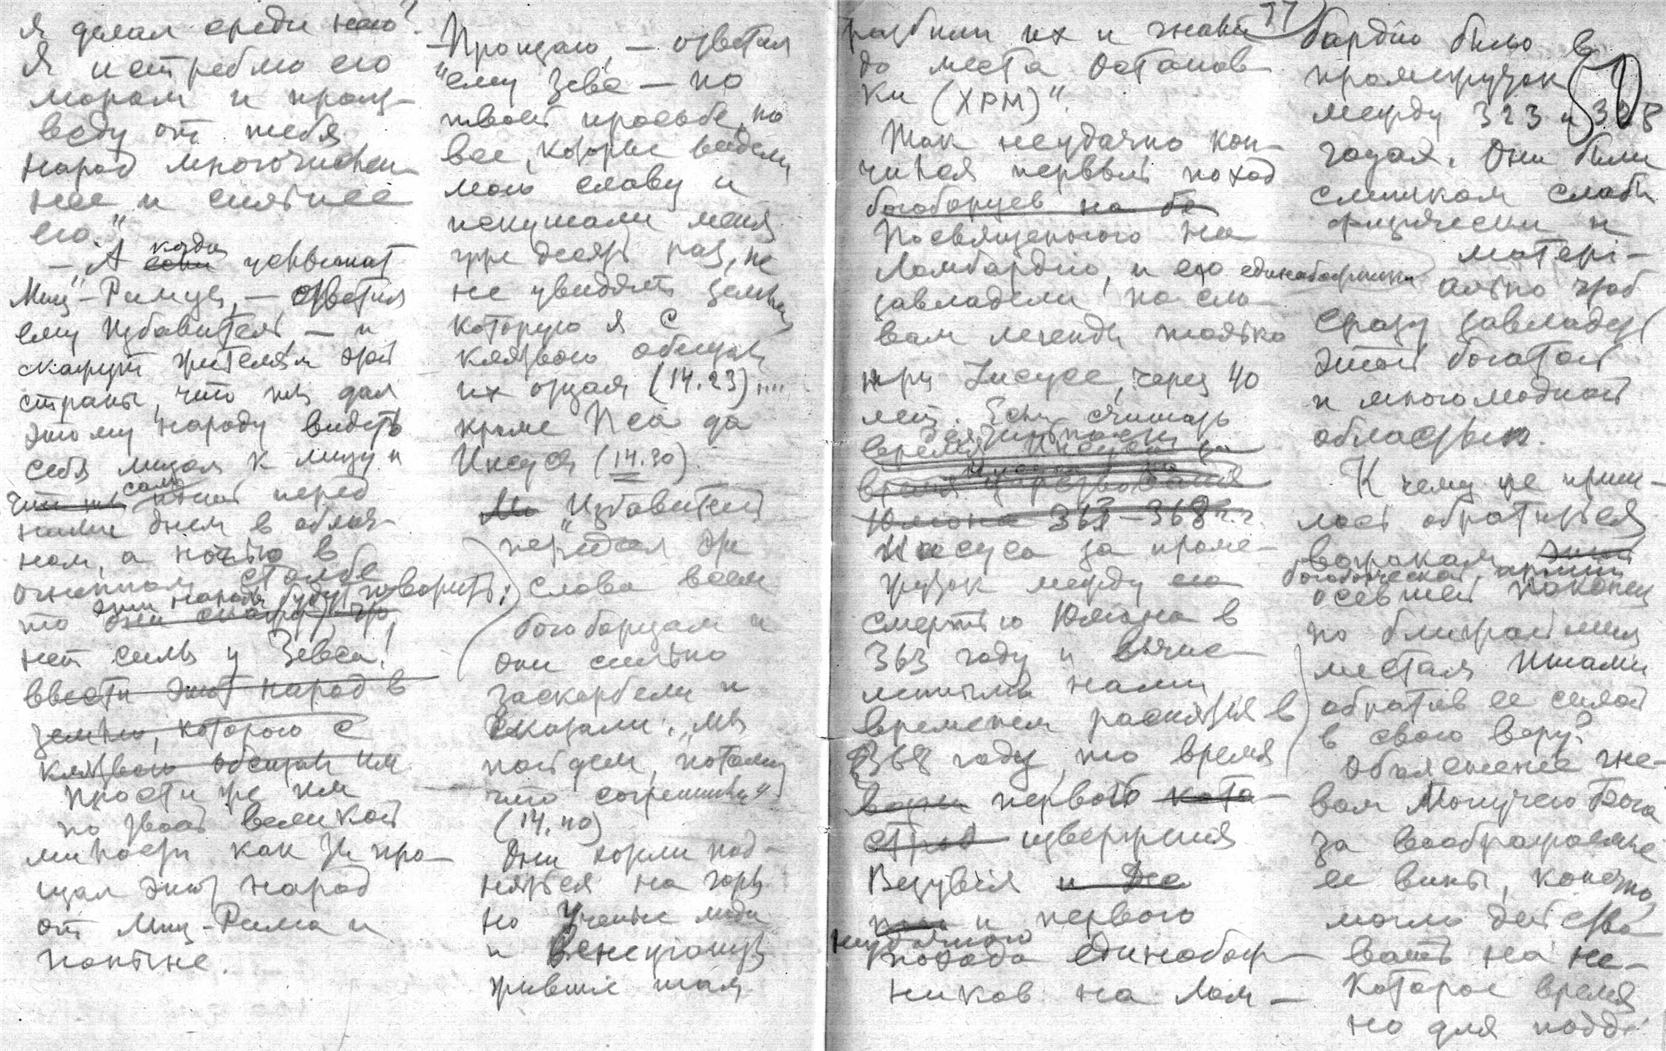 я делал среди него?
Я истреблю его
мором и произ-
веду от тебя
народ многочислен-
нее и сильнее
его."
— „А когда услышат
Миц-Римцы, — ответил
ему Избавитель — и
скажут жителям этой
страны, что ты дал
этому народу видеть
себя лицом к лицу и
сам идешь перед
ними днем в облач-
ном, а ночью в
огненном столбе
то эти народы будут говорить:
нет силы у Зевса!
ввести этот народ в
землю, которою с
клятвою обещал им
Прости же им
по твоей великой
милости как ты про-
щал этот народ
от Миц-Рима и
доныне.
— Прощаю, — ответил
ему Зевс — по
твоей просьбе, но
все, которые видели
мою славу и
искушали меня
уже десять раз, не
не увидят земли
которую я с
клятвою обещал
их отцам (14.23)....
кроме Пса да
Иисуса (14.30)
Избавитель
передал эти
слова всем
богоборцам и
они сильно
заскорбели и
сказали: „мы
пойдем, потому
что согрешили"
(14.40)
Они хотели под-
няться на горы
но ученые люди
и
жившие там
разбили их и гнали 77
до места Останов-
ки (ХРМ)".
Так неудачно кон-
чился первый поход
богоборцев на
Посвященного на
Ломбардию, и его единоборники
завладели по сло-
вам легенды только
при Іисусе, через 40
лет. Если считать
время Иисуса за
Юлиана 363–368 г.
Иисуса за проме-
жуток между его
смертью Юлиана в
363 году и вычис-
ленным нами
временем распятия в
368 году, то время
первого ката-
строф извержения
Везувия
и первого
неудачного
похода единобор-
ников на Лом-
бардію было в 50
промежуток
между 323 и
годах. Они были
слишком слабы
физически и
матері-
ально чтоб
сразу завладеть
этой богатой
и многолюдной
областью.
К чему же приш-
лось обратиться
вожакам
богоборческой армии
осевшей наконец
по ближайшим
местам Италии
обратив ее силой
в свою веру?
Объяснение гне-
вом Могучего Бога
за воображаемые
ее вины, конечно,
могло действо-
вать на не-
которое время
но для подд-